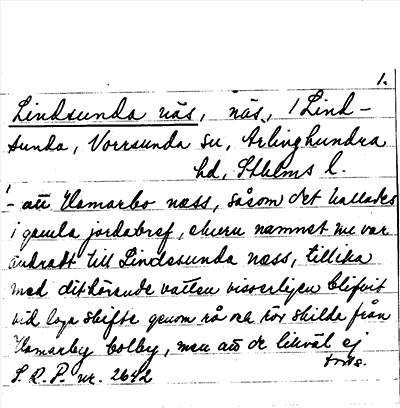 1.
Lindsunda näs, näs, i Lind-
sunda, Vorrsunda su, Arlinghundra
hd, Sthlms l.
1
– att Hamarbo næss, såsom det kallades
i gamla jordabref, ehuru namnet nu var
ändradt till Lindesunda næss, tillika
med dithörande vatten visserligen blifvit
vid laga skifte genom rå och rör skilda från
Hamarby bolby, men att de likväl ej
S. R. P. nr. 2642